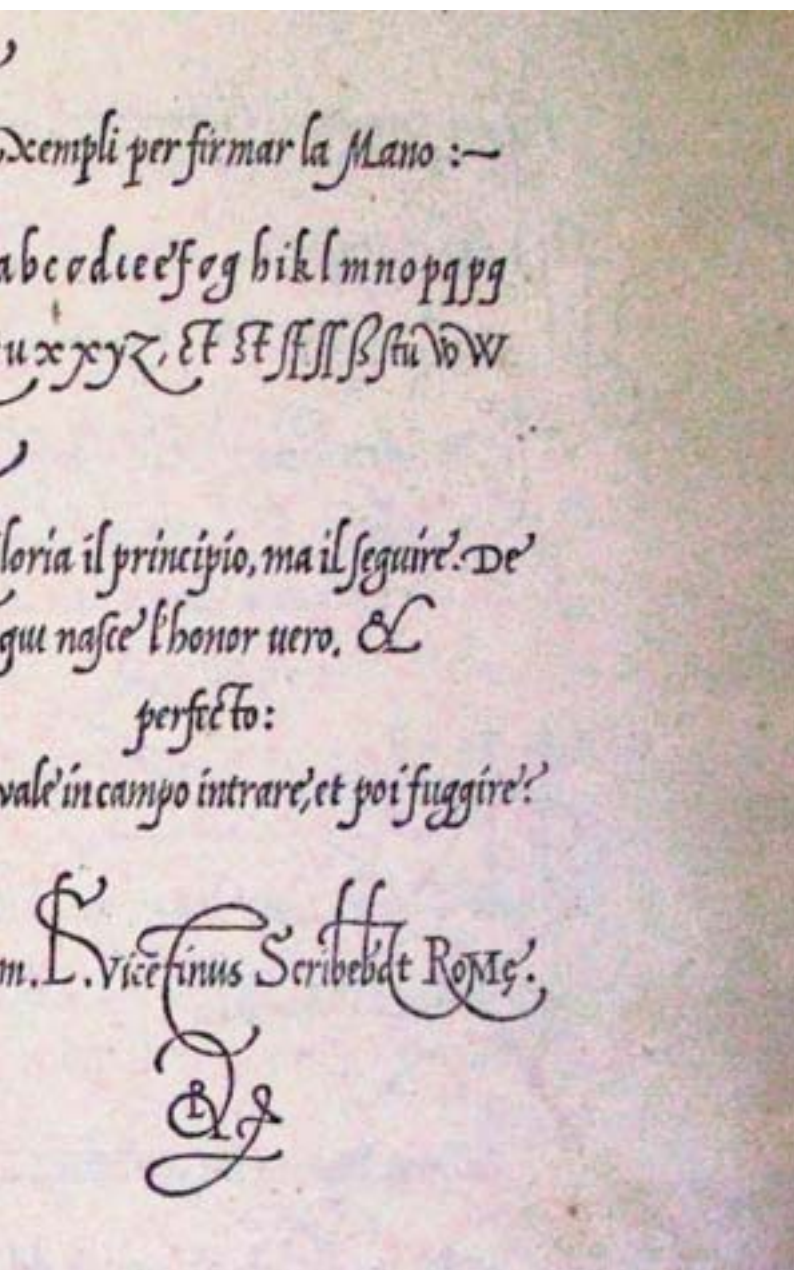 xempli per firmar la Mano :~
a b c ꝺ d ı e e f ꝺ g h i k l m n o p q p g
u x x y z, & & ſf ſſ ß ſtu Vo W
loria il principio, ma il ſeguire. De
qui naſce l'honor uero, &
perfecto:
vale in campo intrare, et poi fuggire?
m. L. Vicētinus Scribebat Romę.